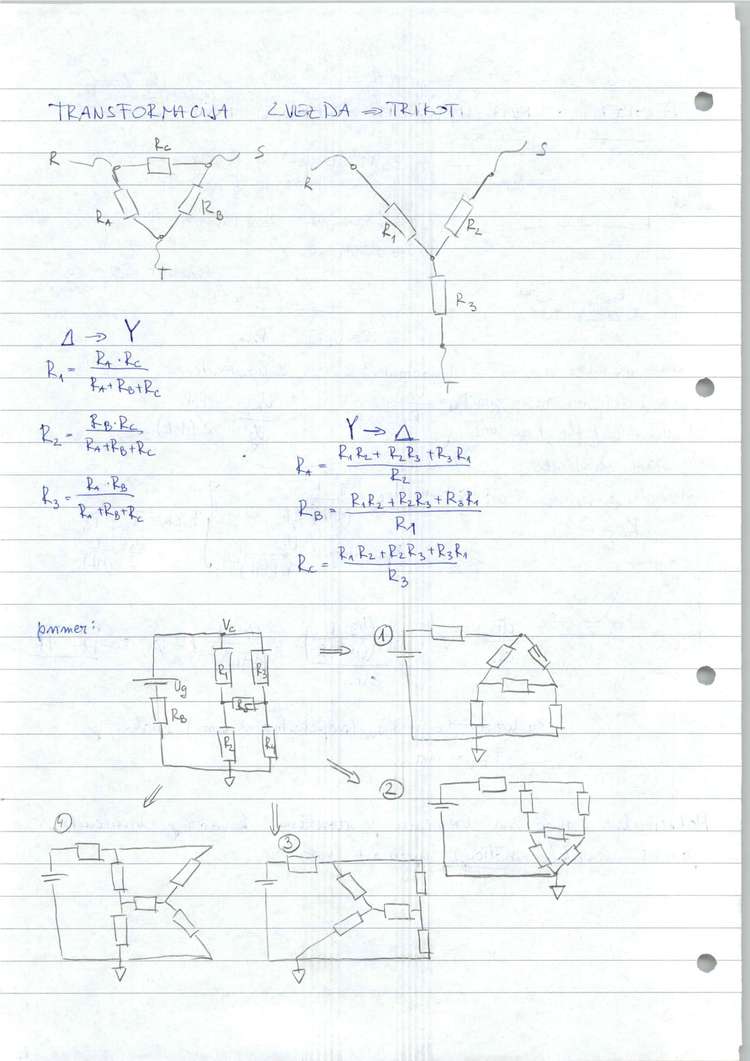 TRANSFORMACIJA ZVEZDA ⇒ TRIKOT
R Rc S
RA RB
T
R S
R1 R2
R3
T
Δ → Y
R1 = RA · RC / RA + RB + RC
R2 = RB · RC / RA + RB + RC
R3 = RA · RB / RA + RB + RC
Y → Δ
RA = R1R2 + R2R3 + R3R1 / R2
RB = R1R2 + R2R3 + R3R1 / R1
RC = R1R2 + R2R3 + R3R1 / R3
primer:
Vc
Ug
RB
R1 R3
R5
R2 R4
⇒ 1
⇒ 2
⇒ 3
⇒ 4